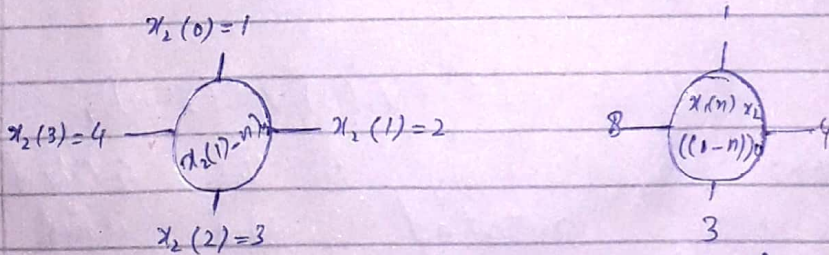 x₂(0)=1
x₂(3)=4
x₂(1)-n)₄
x₂(1)=2
x₂(2)=3
1
8
x₁(n) x₂
((1-n))
3